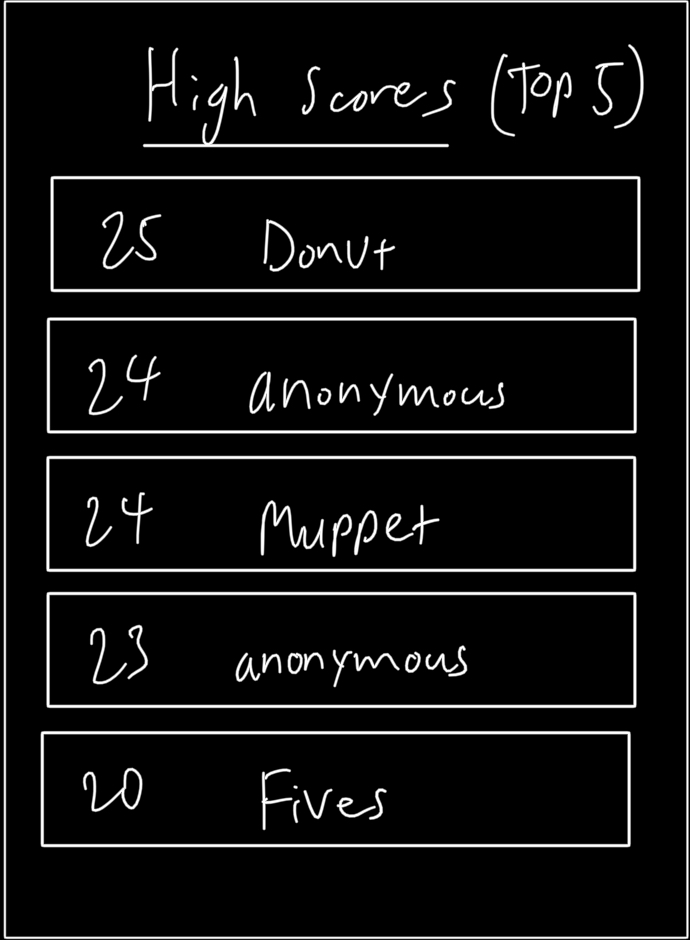 High Scores (Top 5)
25 Donut
24 anonymous
24 Muppet
23 anonymous
20 Fives